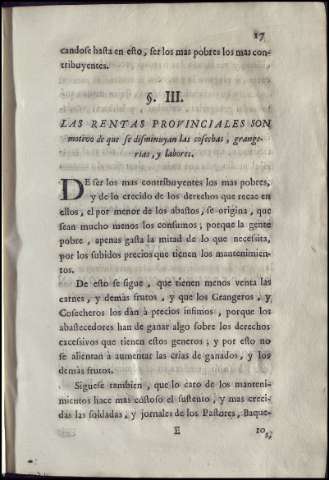 17
candose hasta en esto, ser los mas pobres los mas con-
tribuyentes.
§. III.
LAS RENTAS PROVINCIALES SON
motivo de que se disminuyan las cosechas, grange-
rias, y labores.
DE ser los mas contribuyentes los mas pobres,
y de lo crecido de los derechos que recae en
estos, el por menor de los abastos, se origina, que
sean mucho menos los consumos; porque la gente
pobre, apenas gasta la mitad de lo que necessita,
por los subidos precios que tienen los mantenimien-
tos.
De esto se sigue, que tienen menos venta las
carnes, y demàs frutos, y que los Grangeros, y
Cosecheros los dàn à precios infimos, porque los
abastecedores han de ganar algo sobre los derechos
excessivos que tienen estos generos; y por esto no
se alientan à aumentar las crias de ganados, y los
demàs frutos.
Siguese tambien, que lo caro de los manteni-
mientos hace mas costoso el sustento, y mas creci-
das las soldadas, y jornales de los Pastores, Baque-
E
ros,